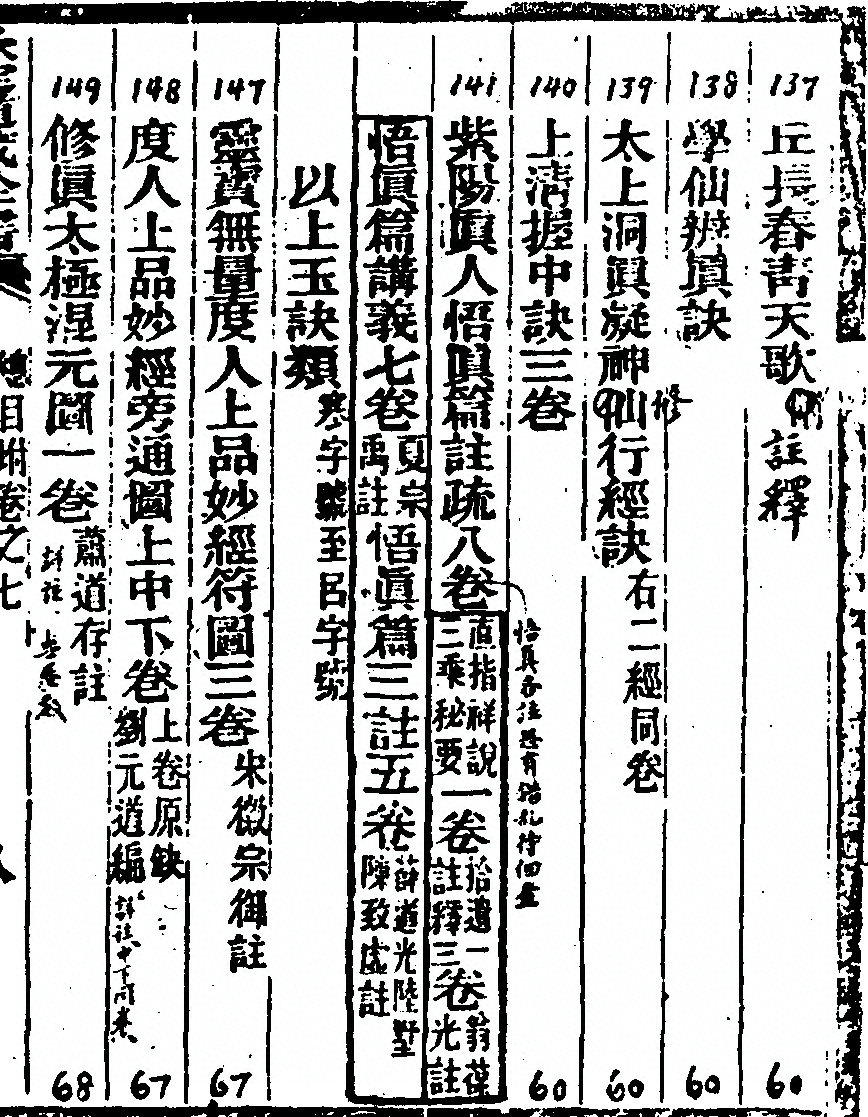 137 丘長春青天歌 註釋 60
138 學仙辨眞訣 60
139 太上洞眞凝神修仙行經訣 右二經同卷 60
140 上清握中訣三卷 60
141 紫陽眞人悟眞篇註疏八卷 直指祥說三乘秘要一卷 拾遺一註釋三卷 翁葆光註
悟眞篇講義七卷 夏宗禹註 悟眞篇三註五卷 薛道光陸墅陳致虛註
以上玉訣類 寒字號至呂字號
147 靈寶無量度人上品妙經符圖三卷 宋徽宗御註 67
148 度人上品妙經旁通圖上中下卷 上卷原缺劉元道編 67
149 修眞太極混元圖一卷 蕭道存註 68
總目坿卷之七